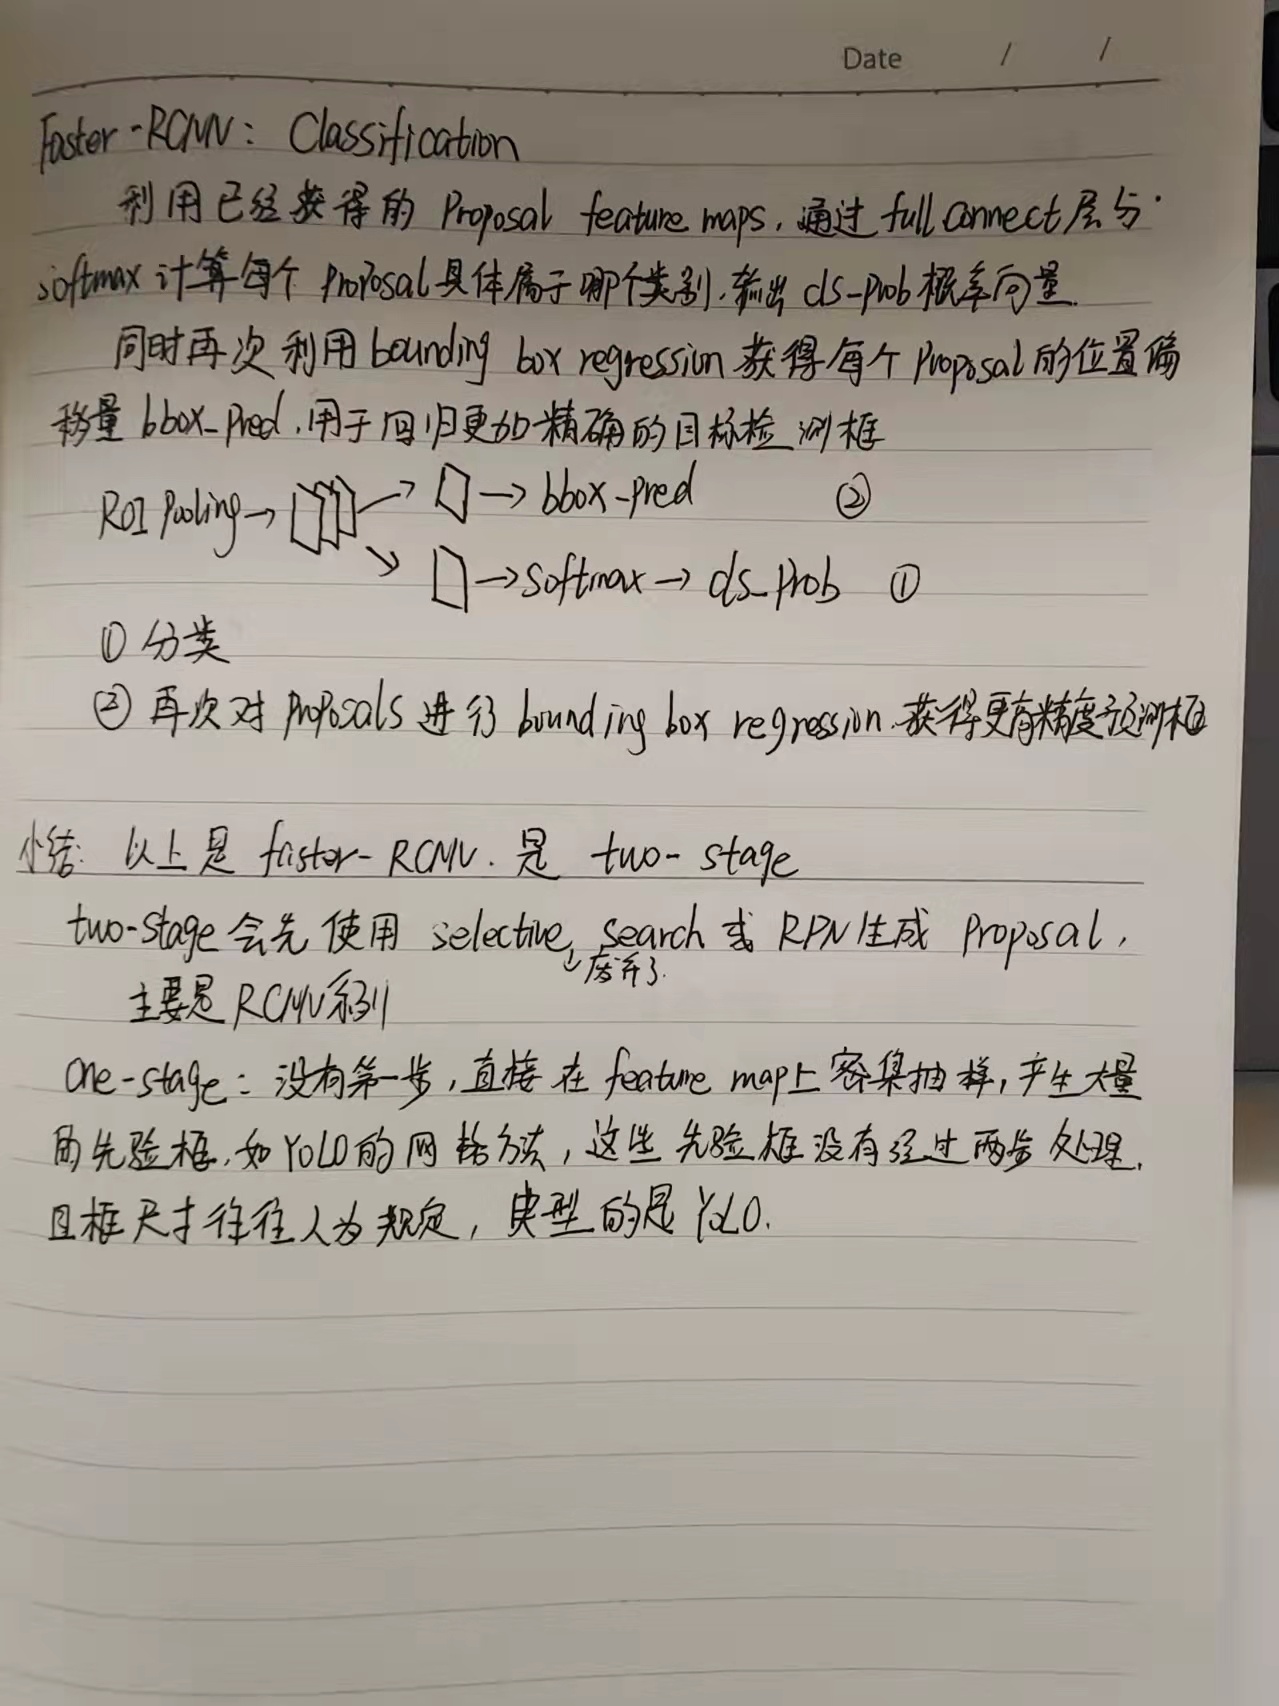 Date / /
Faster-RCNN: Classification
利用已经获得的 Proposal feature maps，通过 full connect 层与
softmax 计算每个 Proposal 具体属于哪个类别，输出 cls_prob 概率向量.
同时再次利用 bounding box regression 获得每个 Proposal 的位置偏
移量 bbox_pred，用于回归更加精确的目标检测框
ROI Pooling → → bbox-pred ②
→ softmax → cls_prob ①
① 分类
② 再次对 Proposals 进行 bounding box regression，获得更有精度预测框
小结: 以上是 faster-RCNN. 是 two-stage
two-stage 会先使用 selective search 或 RPN 生成 Proposal，
↓废弃了.
主要是 RCNN 系列
One-stage: 没有第一步，直接在 feature map 上密集抽样，产生大量
的先验框，如 YOLO 的网格方法，这些先验框没有经过两步处理，
且框尺寸往往人为规定，典型的是 YOLO.